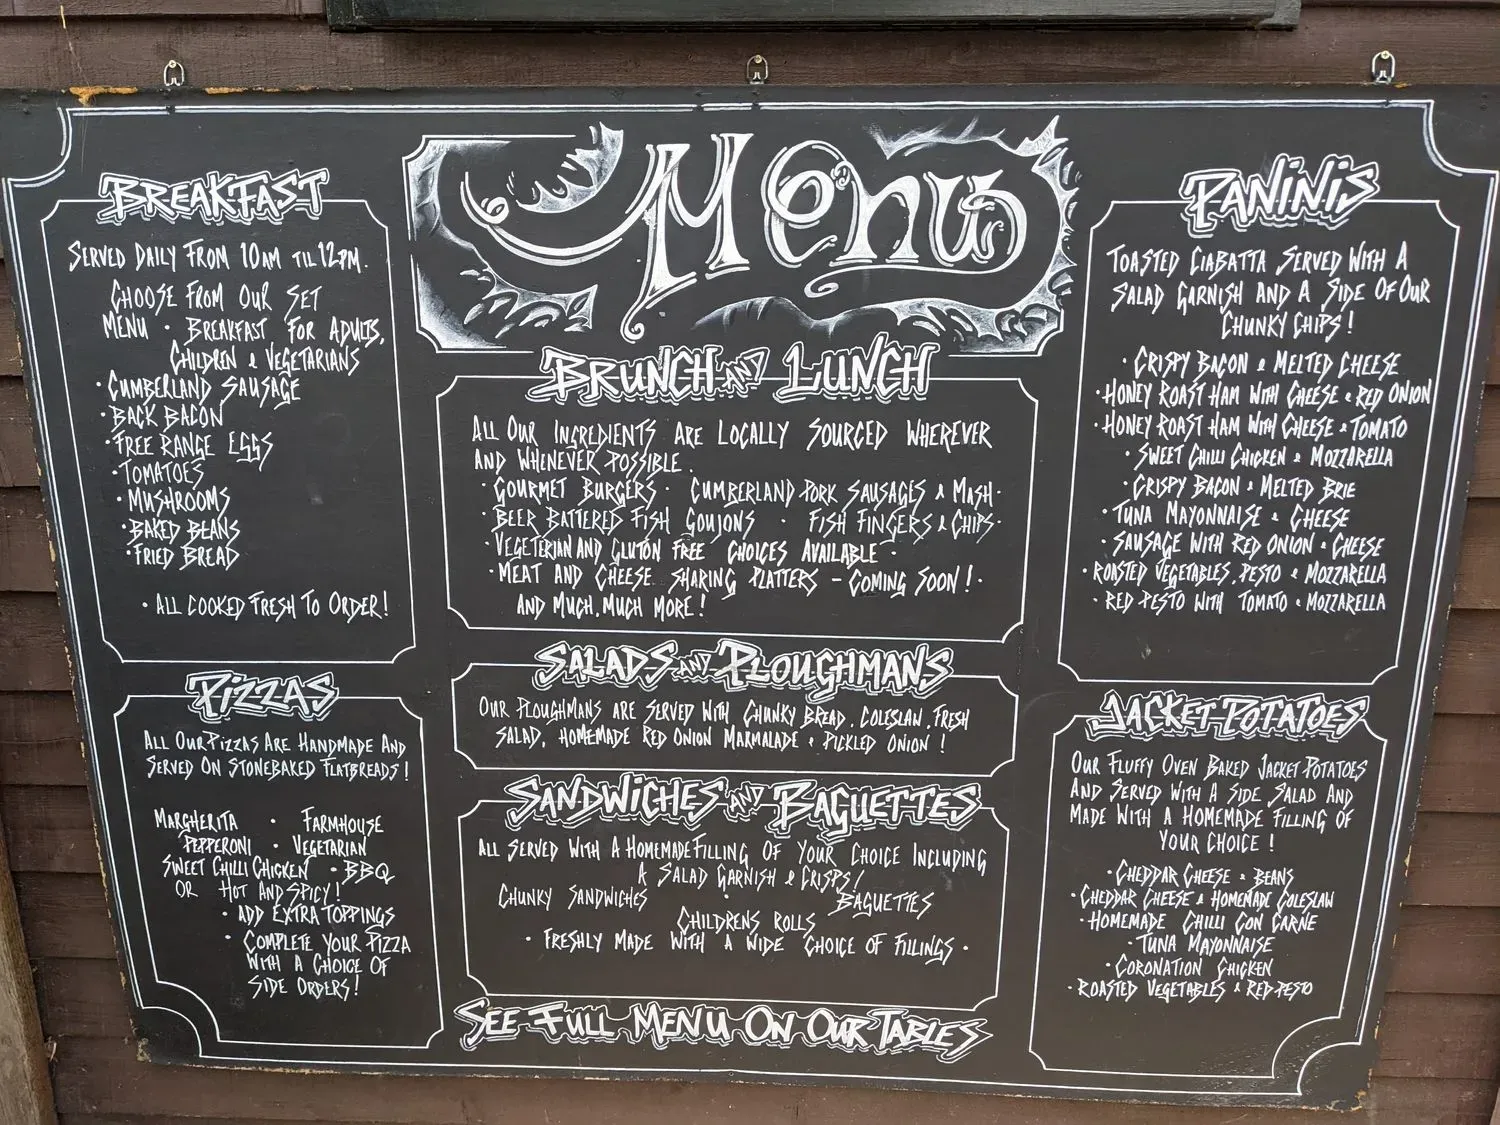 Menu
BREAKFAST
SERVED DAILY FROM 10AM TIL 12PM.
CHOOSE FROM OUR SET
MENU · BREAKFAST FOR ADULTS,
CHILDREN & VEGETARIANS
· CUMBERLAND SAUSAGE
· BACK BACON
· FREE RANGE EGGS
· TOMATOES
· MUSHROOMS
· BAKED BEANS
· FRIED BREAD
· ALL COOKED FRESH TO ORDER!
PIZZAS
ALL OUR PIZZAS ARE HANDMADE AND
SERVED ON STONEBAKED FLATBREADS!
MARGHERITA · FARMHOUSE
PEPPERONI · VEGETARIAN
SWEET CHILLI CHICKEN · BBQ
OR HOT AND SPICY!
· ADD EXTRA TOPPINGS
· COMPLETE YOUR PIZZA
WITH A CHOICE OF
SIDE ORDERS!
BRUNCH AND LUNCH
ALL OUR INGREDIENTS ARE LOCALLY SOURCED WHEREVER
AND WHENEVER POSSIBLE.
· GOURMET BURGERS · CUMBERLAND PORK SAUSAGES & MASH ·
· BEER BATTERED FISH GOUJONS · FISH FINGERS & CHIPS ·
· VEGETERIAN AND GLUTON FREE CHOICES AVAILABLE ·
· MEAT AND CHEESE SHARING PLATTERS - COMING SOON! ·
AND MUCH, MUCH MORE!
SALADS AND PLOUGHMANS
OUR PLOUGHMANS ARE SERVED WITH CHUNKY BREAD, COLESLAW, FRESH
SALAD, HOMEMADE RED ONION MARMALADE & PICKLED ONION!
SANDWICHES AND BAGUETTES
ALL SERVED WITH A HOMEMADE FILLING OF YOUR CHOICE INCLUDING
A SALAD GARNISH & CRISPS!
CHUNKY SANDWICHES · BAGUETTES
CHILDRENS ROLLS
· FRESHLY MADE WITH A WIDE CHOICE OF FILLINGS ·
SEE FULL MENU ON OUR TABLES
PANINIS
TOASTED CIABATTA SERVED WITH A
SALAD GARNISH AND A SIDE OF OUR
CHUNKY CHIPS!
· CRISPY BACON & MELTED CHEESE
· HONEY ROAST HAM WITH CHEESE & RED ONION
· HONEY ROAST HAM WITH CHEESE & TOMATO
· SWEET CHILLI CHICKEN & MOZZARELLA
· CRISPY BACON & MELTED BRIE
· TUNA MAYONNAISE & CHEESE
· SAUSAGE WITH RED ONION & CHEESE
· ROASTED VEGETABLES, PESTO & MOZZARELLA
· RED PESTO WITH TOMATO & MOZZARELLA
JACKET POTATOES
OUR FLUFFY OVEN BAKED JACKET POTATOES
AND SERVED WITH A SIDE SALAD AND
MADE WITH A HOMEMADE FILLING OF
YOUR CHOICE!
· CHEDDAR CHEESE & BEANS
· CHEDDAR CHEESE & HOMEMADE COLESLAW
· HOMEMADE CHILLI CON CARNE
· TUNA MAYONNAISE
· CORONATION CHICKEN
· ROASTED VEGETABLES & RED PESTO